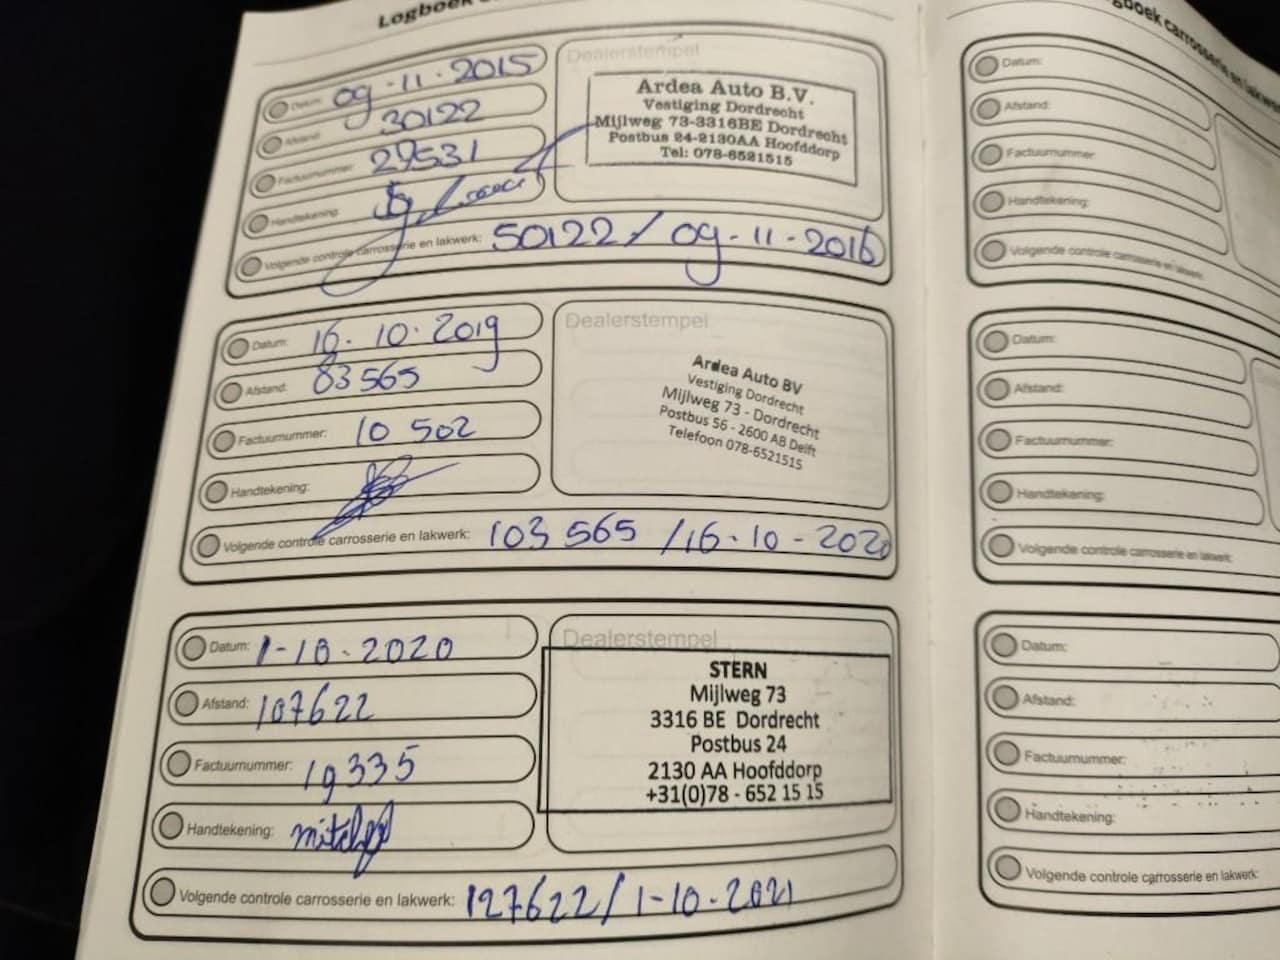 Logboek
Datum: 09-11-2015
Afstand: 30122
Factuurnummer: 29531
Handtekening:
Volgende controle carrosserie en lakwerk: 50122 / 09-11-2016
Dealerstempel
Ardea Auto B.V.
Vestiging Dordrecht
Mijlweg 73-3316BE Dordrecht
Postbus 24-2130AA Hoofddorp
Tel: 078-6521515
Datum: 16.10.2019
Afstand: 83565
Factuurnummer: 10 502
Handtekening:
Volgende controle carrosserie en lakwerk: 103 565 /16-10-2020
Dealerstempel
Ardea Auto BV
Vestiging Dordrecht
Mijlweg 73 - Dordrecht
Postbus 56 - 2600 AB Delft
Telefoon 078-6521515
Datum: 1-10-2020
Afstand: 107622
Factuurnummer: 19335
Handtekening:
Volgende controle carrosserie en lakwerk: 127622/1-10-2021
Dealerstempel
STERN
Mijlweg 73
3316 BE Dordrecht
Postbus 24
2130 AA Hoofddorp
+31(0)78 - 652 15 15
carrosserie en lakwerk
Datum:
Afstand:
Factuurnummer:
Handtekening:
Volgende controle carrosserie en lakwerk:
Datum:
Afstand:
Factuurnummer:
Handtekening:
Volgende controle carrosserie en lakwerk:
Datum:
Afstand:
Factuurnummer:
Handtekening:
Volgende controle carrosserie en lakwerk: